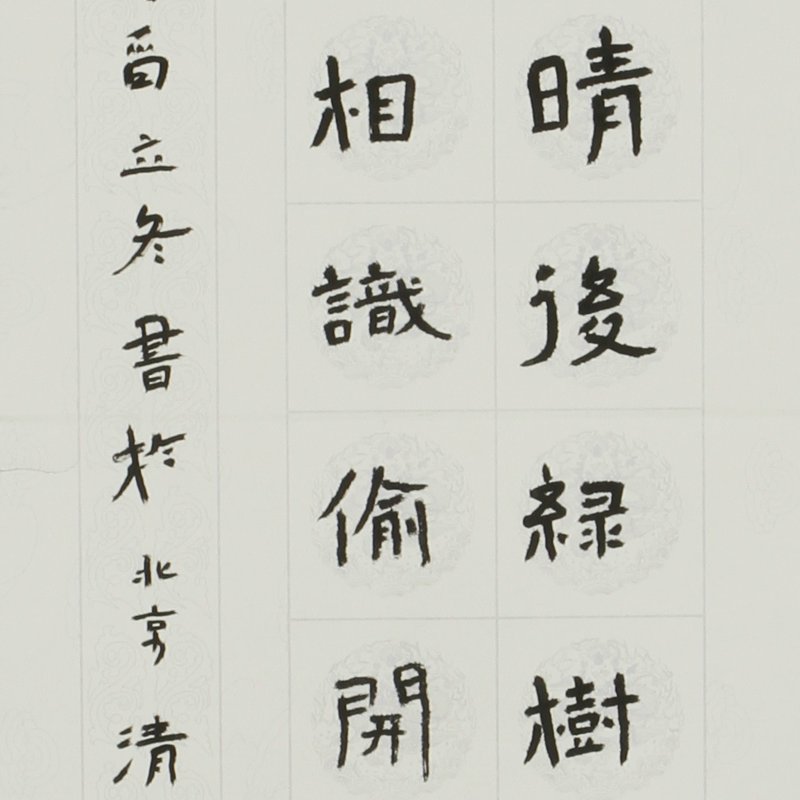 晴後綠樹
相識偷開
酉立冬書於北京清